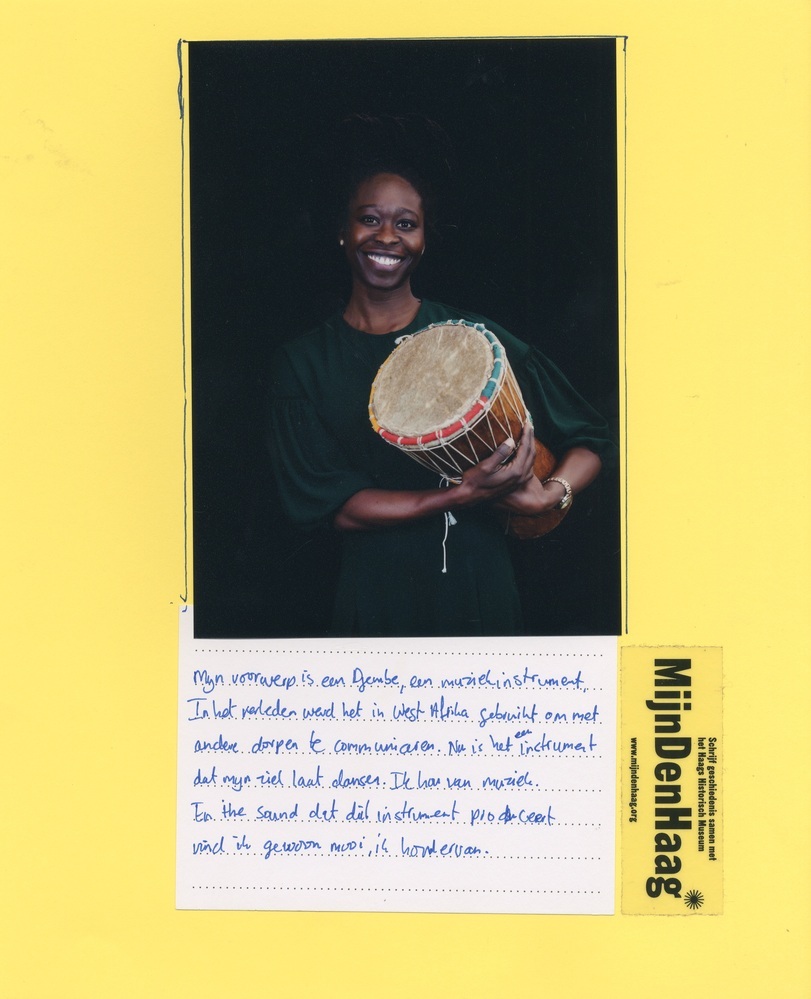 Mijn voorwerp is een Djembe, een muziekinstrument.
In het verleden werd het in West Afrika gebruikt om met
andere dorpen te communiceren. Nu is het een instrument
dat mijn ziel laat dansen. Ik hou van muziek.
En the sound dat dit instrument produceert
vind ik gewoon mooi, ik hou ervan.
MijnDenHaag
Schrijf geschiedenis samen met
het Haags Historisch Museum
www.mijndenhaag.org